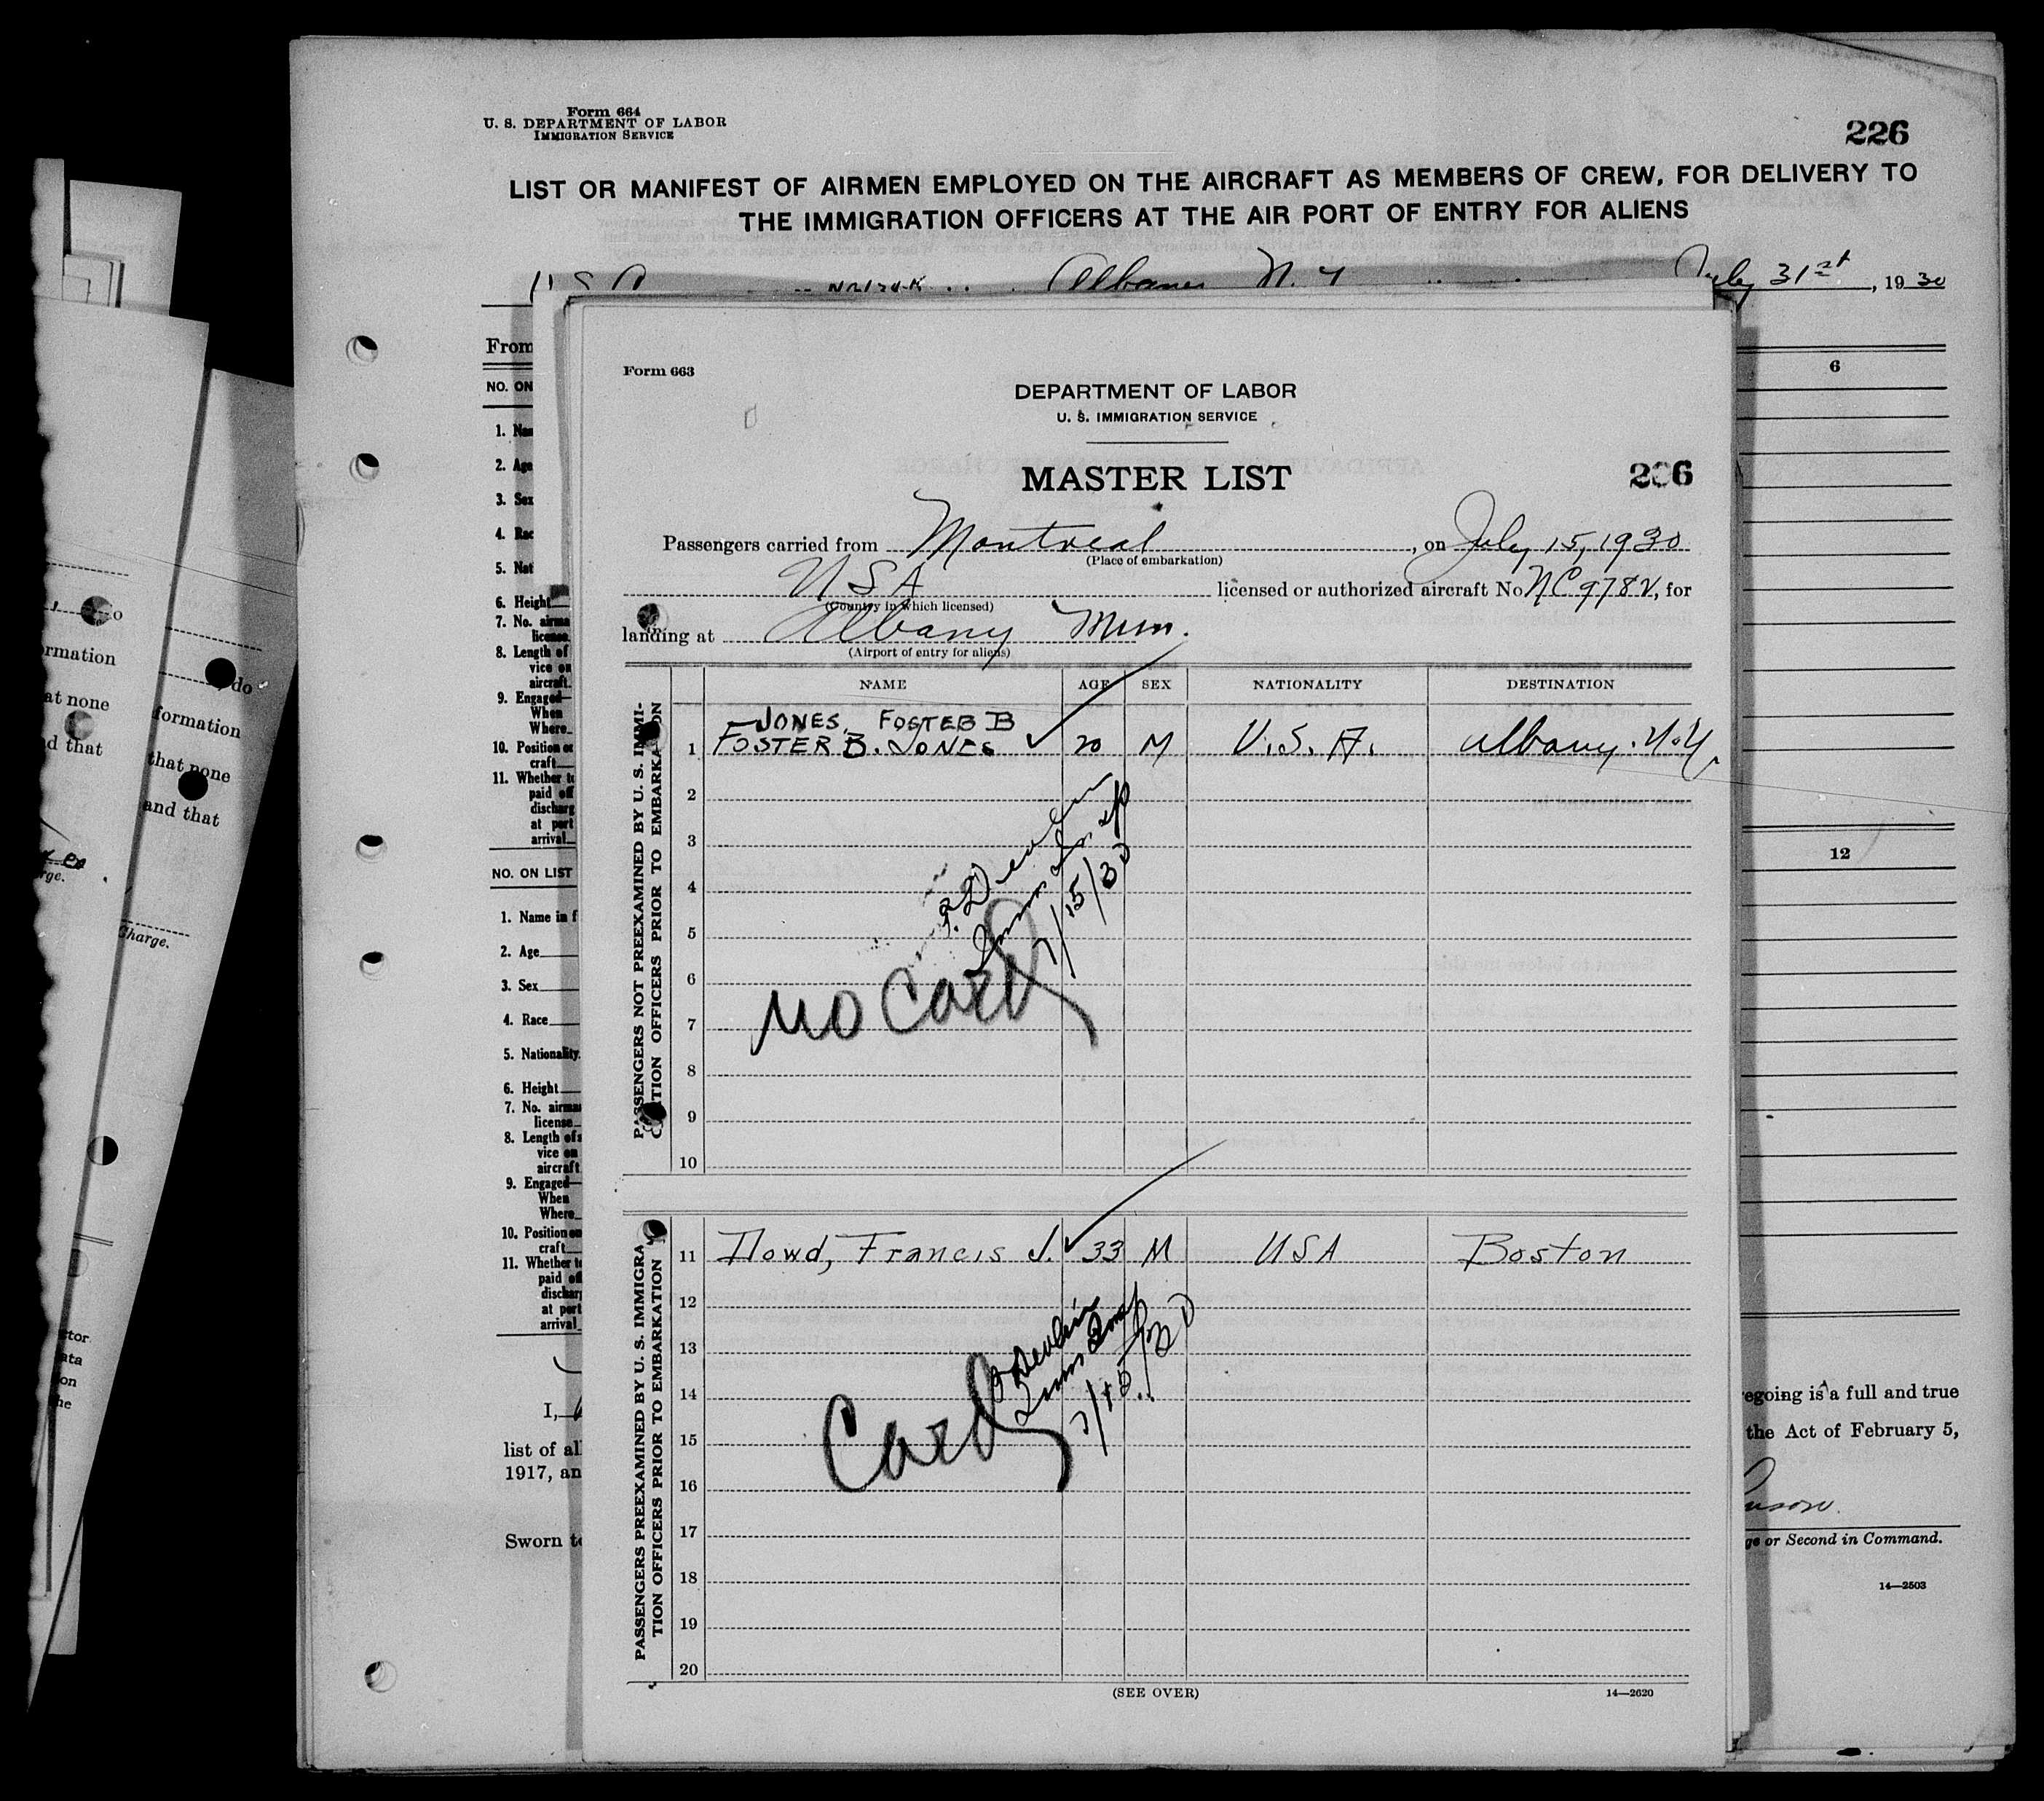 Form 664
U. S. DEPARTMENT OF LABOR
IMMIGRATION SERVICE
226
LIST OR MANIFEST OF AIRMEN EMPLOYED ON THE AIRCRAFT AS MEMBERS OF CREW, FOR DELIVERY TO
THE IMMIGRATION OFFICERS AT THE AIR PORT OF ENTRY FOR ALIENS
Albany N. Y. July 31st, 1930
From
NO. ON
6
1. Na
2. Age
3. Sex
4. Rac
5. Nat
6. Height
7. No. airma
license
8. Length of
vice on
aircraft
9. Engaged—
When
Where
10. Position on
craft
11. Whether t
paid off
discharg
at port
arrival
NO. ON LIST
12
1. Name in f
2. Age
3. Sex
4. Race
5. Nationality
6. Height
7. No. airma
license
8. Length of s
vice on
aircraft
9. Engaged—
When
Where
10. Position on
craft
11. Whether t
paid off
discharg
at port
arrival
I,
list of al
1917, an
Sworn to
egoing is a full and true
the Act of February 5,
ge or Second in Command.
14—2503
Form 663
DEPARTMENT OF LABOR
U. S. IMMIGRATION SERVICE
MASTER LIST
206
Passengers carried from Montreal, on July 15, 1930
(Place of embarkation)
USA licensed or authorized aircraft No NC978V, for
(Country in which licensed)
landing at Albany Mun.
(Airport of entry for aliens)
NAME AGE SEX NATIONALITY DESTINATION
PASSENGERS NOT PREEXAMINED BY U. S. IMMI-
GRATION OFFICERS PRIOR TO EMBARKATION
JONES, FOSTER B
1 FOSTER B. JONES 20 M U.S.A. Albany. N.Y.
2
3
4
5
6
7
8
9
10
Imm Insp
7/15/30
NO Card
PASSENGERS PREEXAMINED BY U. S. IMMIGRA-
TION OFFICERS PRIOR TO EMBARKATION
11 Dowd, Francis J. 33 M USA Boston
12
13
14
15
16
17
18
19
20
Devlin
Imm Insp
7/15/30
Card
(SEE OVER)
14—2620
do
ormation
at none
d that
rge.
do
formation
that none
and that
Charge.
ctor
ata
on
he